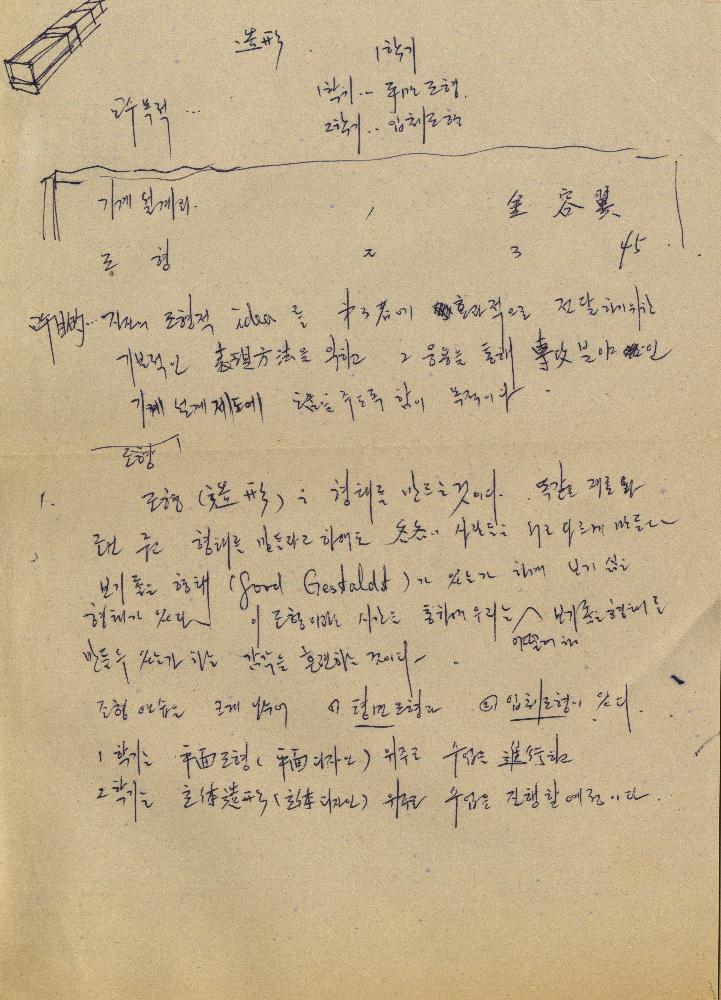 造形 1학기
1학기.. 平면 조형.
교수목적 ... 2학기.. 입체조형
기계설계과. 1 金容翼
조형 2 3 45
교수目的... 자기의 조형적 idea 를 第3者에 효과적으로 전달하기위한
기본적인 表現方法을 익히고 그 응용을 통해 專攻분야인
기계설계제도에 도움을 주도록 함이 목적이다.
조형
1. 조형 (造形) 은 형태를 만드는 것이다. 똑같은 재료와
주고 형태를 만들라고 하여도 各各의 사람들은 서로 다르게 만든다
보기좋은 형태 (Good Gestaldt) 가 있는가 하면 보기 싫은
형태가 있다. 이 조형이라는 시간을 통하여 우리는 어떻게 해 보기좋은 형태를
만들수 있는가 하는 감각을 훈련하는 것이다.
조형 연습은 크게 나누어 ㉠ 평면조형과 ㉡ 입체조형이 있다.
1학기는 平面조형(平面디자인) 위주로 수업을 進行하고
2학기는 立体造形(立体디자인) 위주로 수업을 진행할 예정이다.